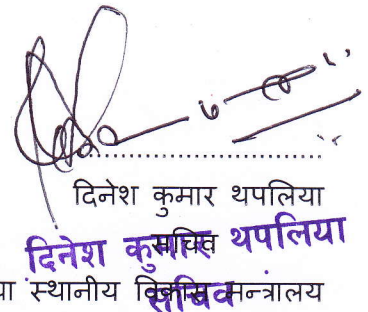 दिनेश कुमार थपलिया
सचिव
दिनेश कुमार थपलिया
या स्थानीय विकास मन्त्रालय
सचिव